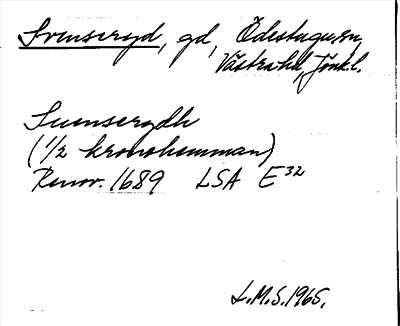 Svenseryd, gd, Ödestugu sn,
Västra hd, Jönk.l.
Suenserydh
(1/2 kronohemman)
Renov. 1689 LSA E32
L.M.S. 1965.